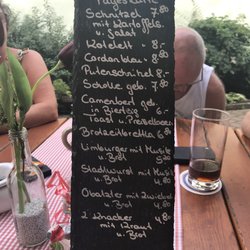 Tageskarte
Schnitzel 7.80
mit Kartoffels.
u. Salat
Kotelett 8.-
Cordonbleu 8.-
Putenschnitzel 8.-
Scholle geb. 7.80
Camenbert geb.
in Bierteig 6.-
Toast u. Preiselbeeren
Brotzeitbrettla 6.80
Limburger mit Musik
u. Brot 5.20
Stadtwurst mit Musik
u. Brot 4.80
Obatzter mit Zwiebel
u. Brot 4.80
2 Knacker 4.80
mit Kraut
u. Brot